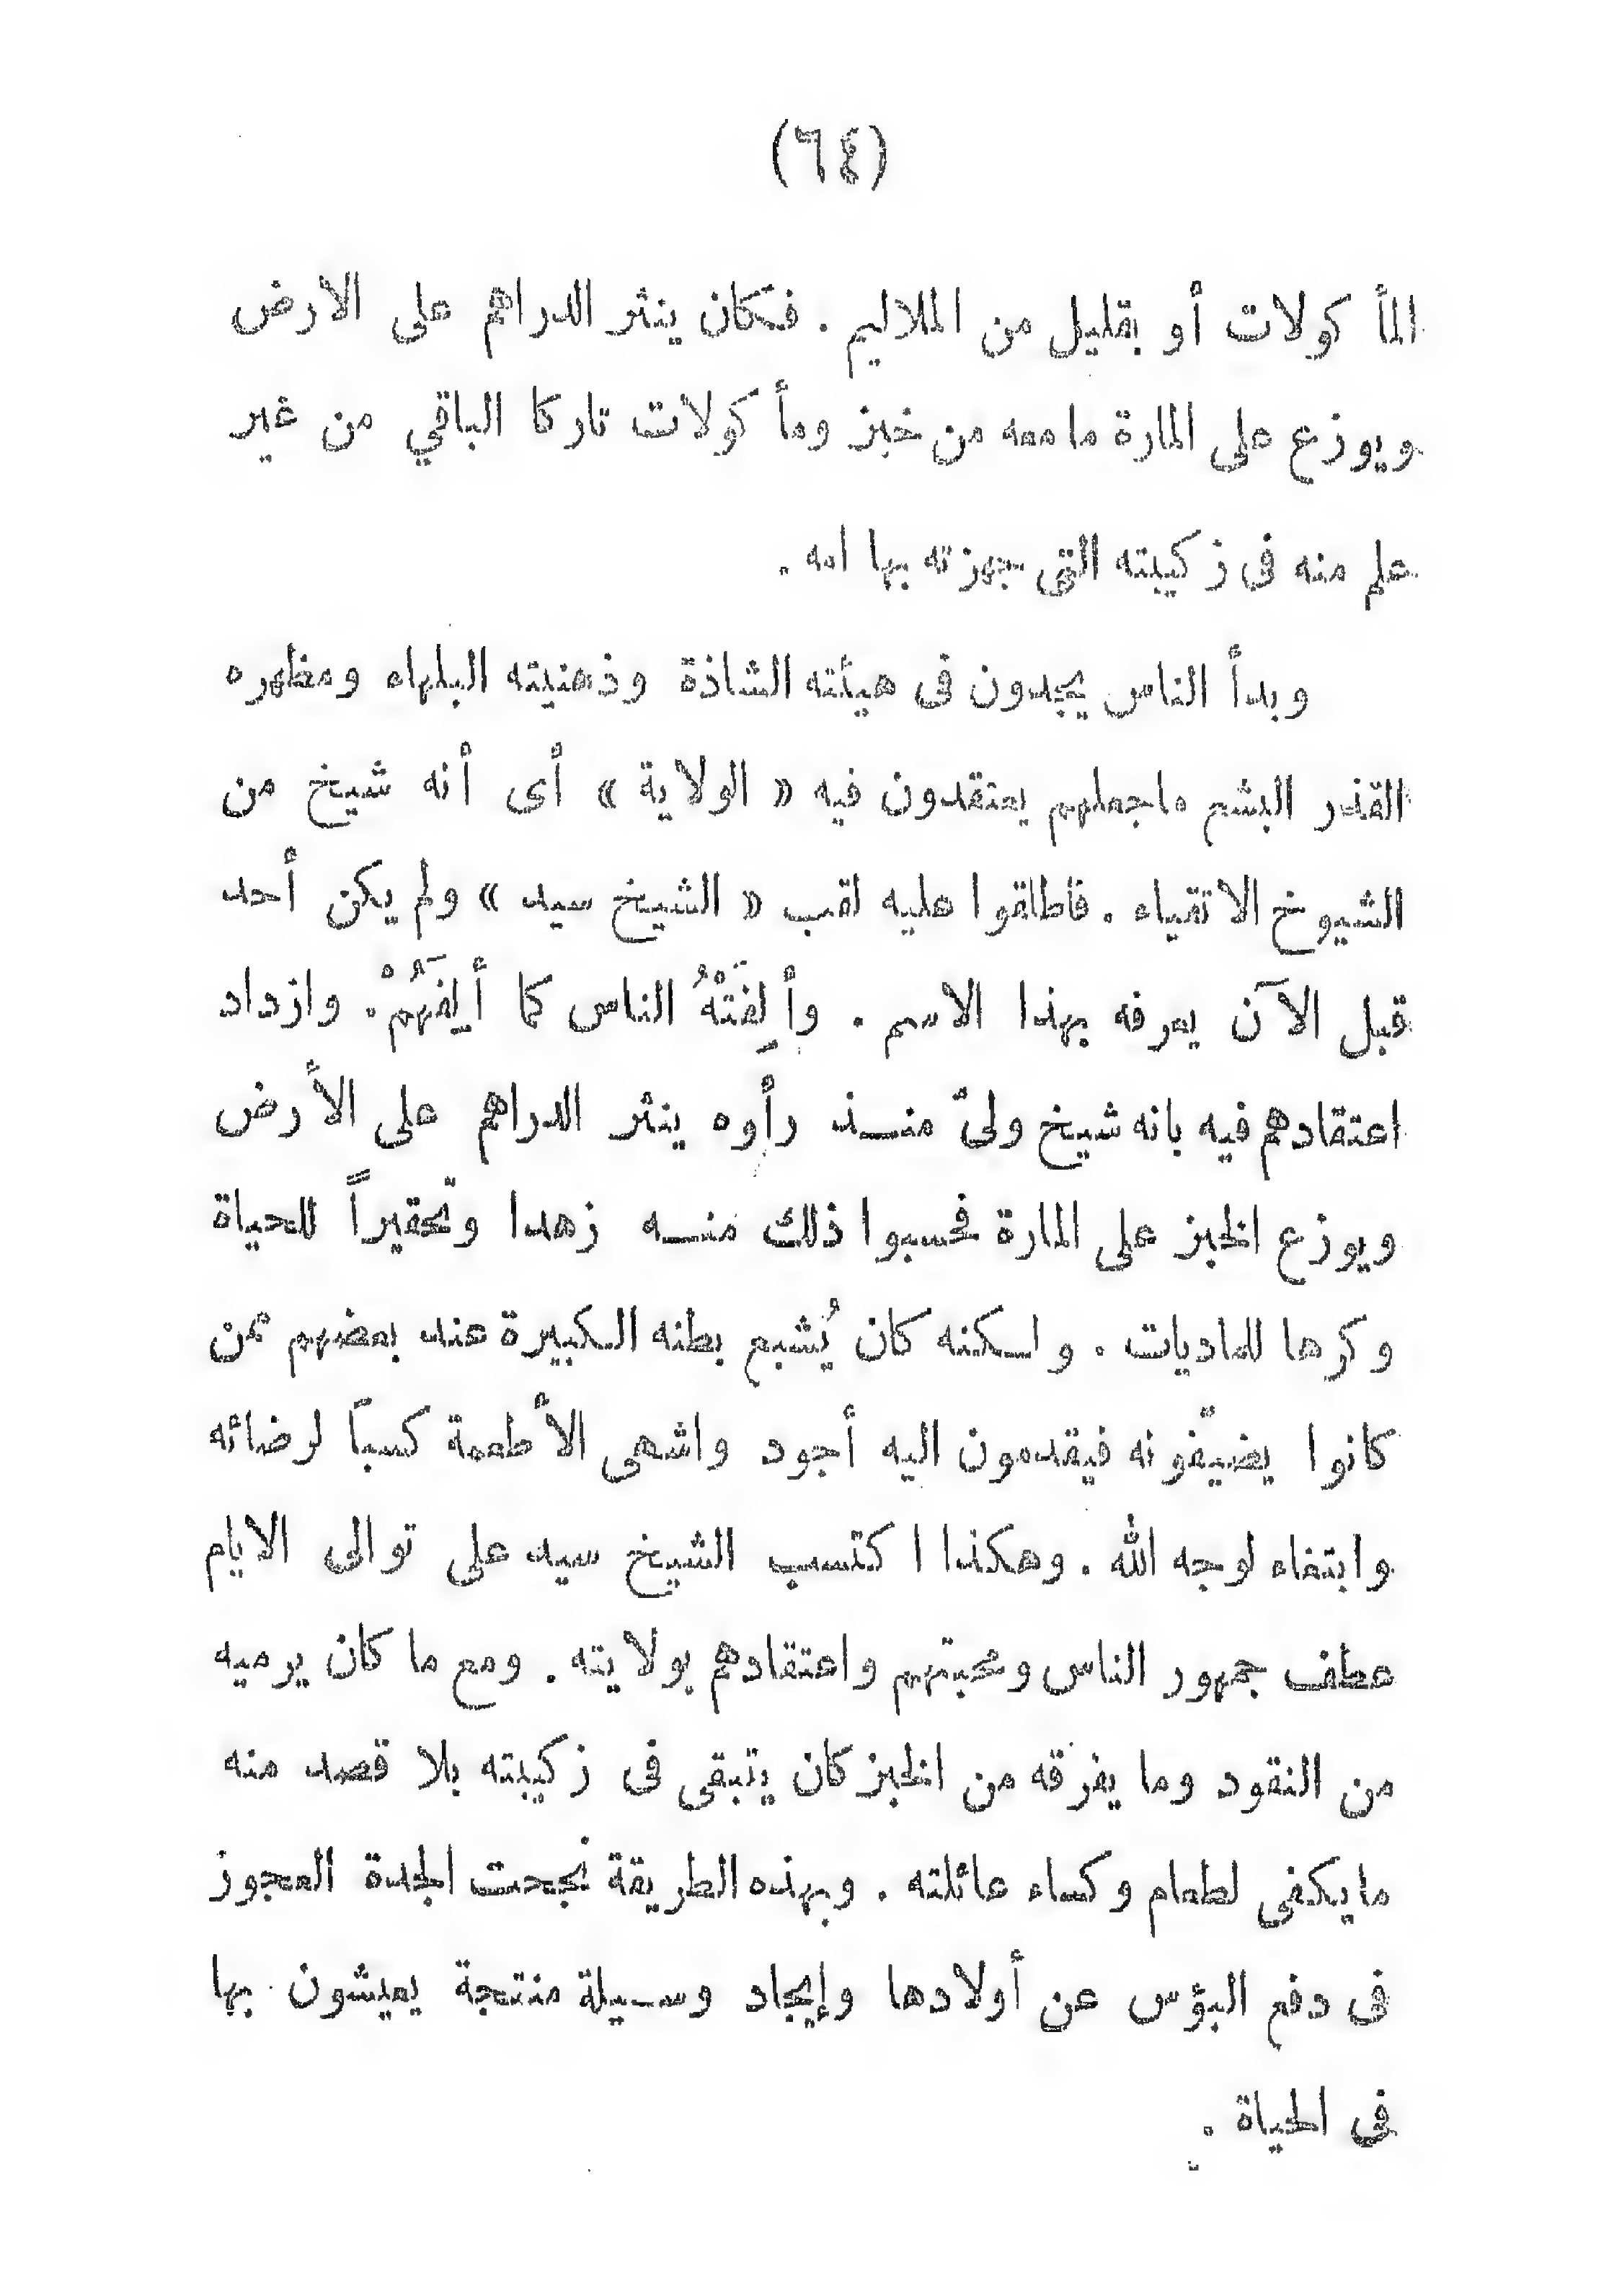 (٦٤)
المأكولات أو بقليل من الملاليم . فكان ينثر الدراهم على الارض
ويوزع على المارة مامعه من خبز ومأكولات تاركا الباقي من غير
علم منه فى زكيبته التى جهزته بها امه .
وبدأ الناس يجدون فى هيئته الشاذة وذهنيته البلهاء ومظهره
القذر البشع ماجعلهم يعتقدون فيه « الولاية » أى أنه شيخ من
الشيوخ الاتقياء . فأطلقوا عليه لقب « الشيخ سيد » ولم يكن أحد
قبل الآن يعرفه بهذا الاسم . وأَلِفَتْهُ الناس كما أَلِفَهُمْ . وازداد
اعتقادهم فيه بانه شيخ ولىّ منـذ رأوه ينثر الدراهم على الأرض
ويوزع الخبز على المارة فحسبوا ذلك منـه زهدا وتحقيراً للحياة
وكرها للماديات . ولـكنه كان يُشبع بطنه الـكبيرة عند بعضهم ممن
كانوا يضيّفونه فيقدمون اليه أجود واشهى الأطعمة كسباً لرضائه
وابتغاء لوجه الله . وهكذا اكتسب الشيخ سيد على توالى الايام
عطف جمهور الناس ومحبتهم واعتقادهم بولايته . ومع ما كان يرميه
من النقود وما يفرقه من الخبز كان يتبقى فى زكيبته بلا قصد منه
مايكفى لطعام وكساء عائلته . وبهذه الطريقة نجحت الجدة العجوز
فى دفع البؤس عن أولادها وإيجاد وسـيلة منتجة يعيشون بها
فى الحياة .